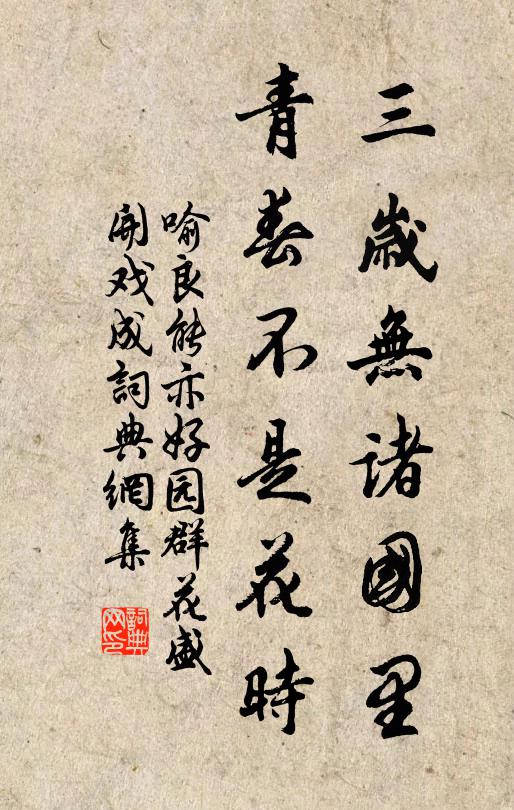 三歲無諸國里
青春不是花時
喻良能亦好园群花盛
開戏成詞典網集
詞典
网印